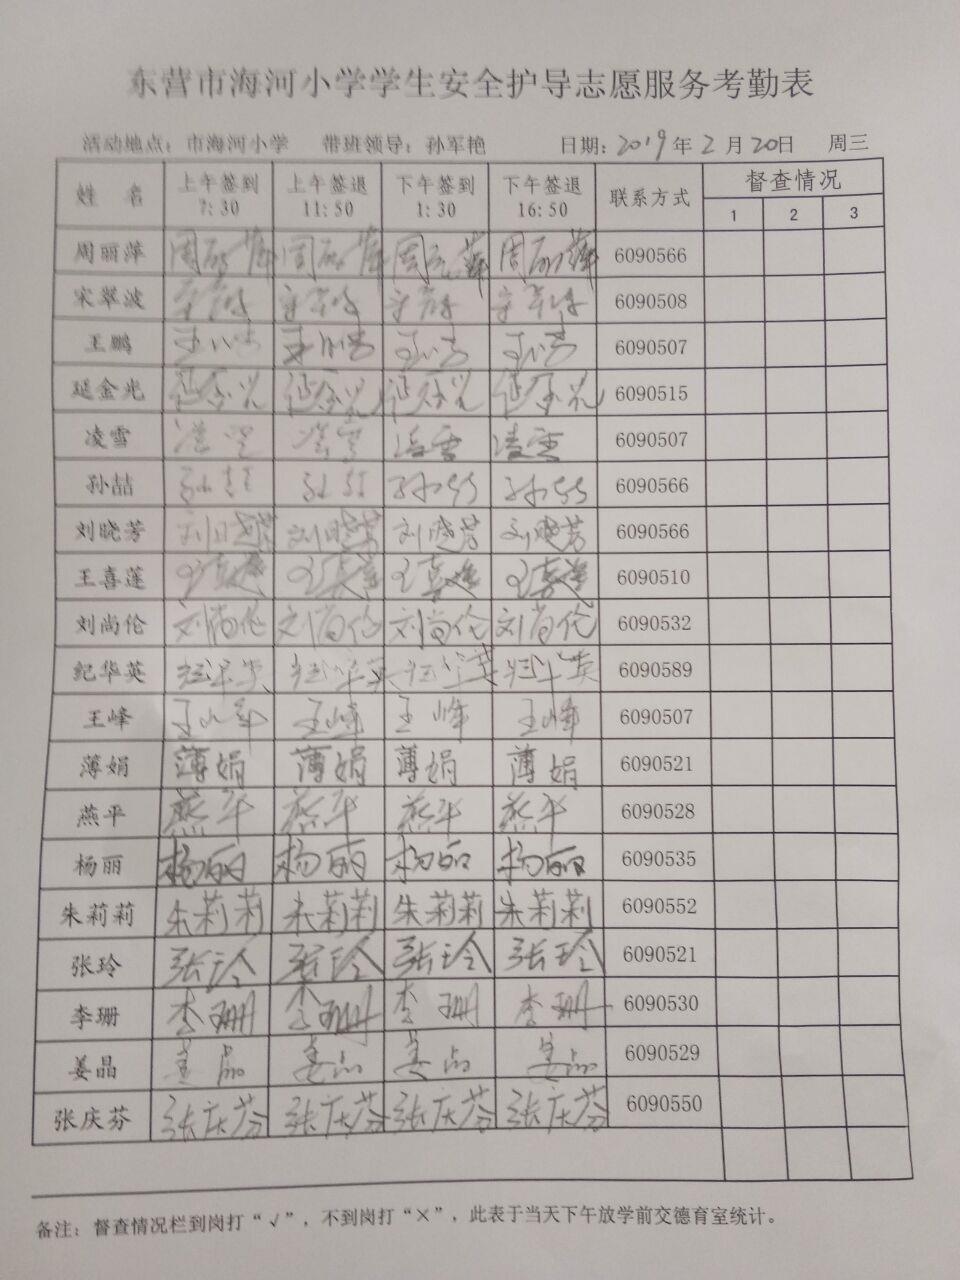 东营市海河小学学生安全护导志愿服务考勤表
活动地点：市海河小学 带班领导：孙军艳 日期：2019年2月20日 周三
姓 名 上午签到 7:30 上午签退 11:50 下午签到 1:30 下午签退 16:50 联系方式 督查情况 1 2 3
周丽萍 周丽萍 周丽萍 周丽萍 周丽萍 6090566
宋翠波 宋翠波 宋翠波 宋翠波 宋翠波 6090508
王鹏 王鹏 王鹏 王鹏 王鹏 6090507
延金光 延金光 延金光 延金光 延金光 6090515
凌雪 凌雪 凌雪 凌雪 凌雪 6090507
孙喆 孙喆 孙喆 孙喆 孙喆 6090566
刘晓芳 刘晓芳 刘晓芳 刘晓芳 刘晓芳 6090566
王喜莲 王喜莲 王喜莲 王喜莲 王喜莲 6090510
刘尚伦 刘尚伦 刘尚伦 刘尚伦 刘尚伦 6090532
纪华英 纪华英 纪华英 纪华英 纪华英 6090589
王峰 王峰 王峰 王峰 王峰 6090507
薄娟 薄娟 薄娟 薄娟 薄娟 6090521
燕平 燕平 燕平 燕平 燕平 6090528
杨丽 杨丽 杨丽 杨丽 杨丽 6090535
朱莉莉 朱莉莉 朱莉莉 朱莉莉 朱莉莉 6090552
张玲 张玲 张玲 张玲 张玲 6090521
李珊 李珊 李珊 李珊 李珊 6090530
姜晶 姜晶 姜晶 姜晶 姜晶 6090529
张庆芬 张庆芬 张庆芬 张庆芬 张庆芬 6090550
备注：督查情况栏到岗打“√”，不到岗打“×”，此表于当天下午放学前交德育室统计。